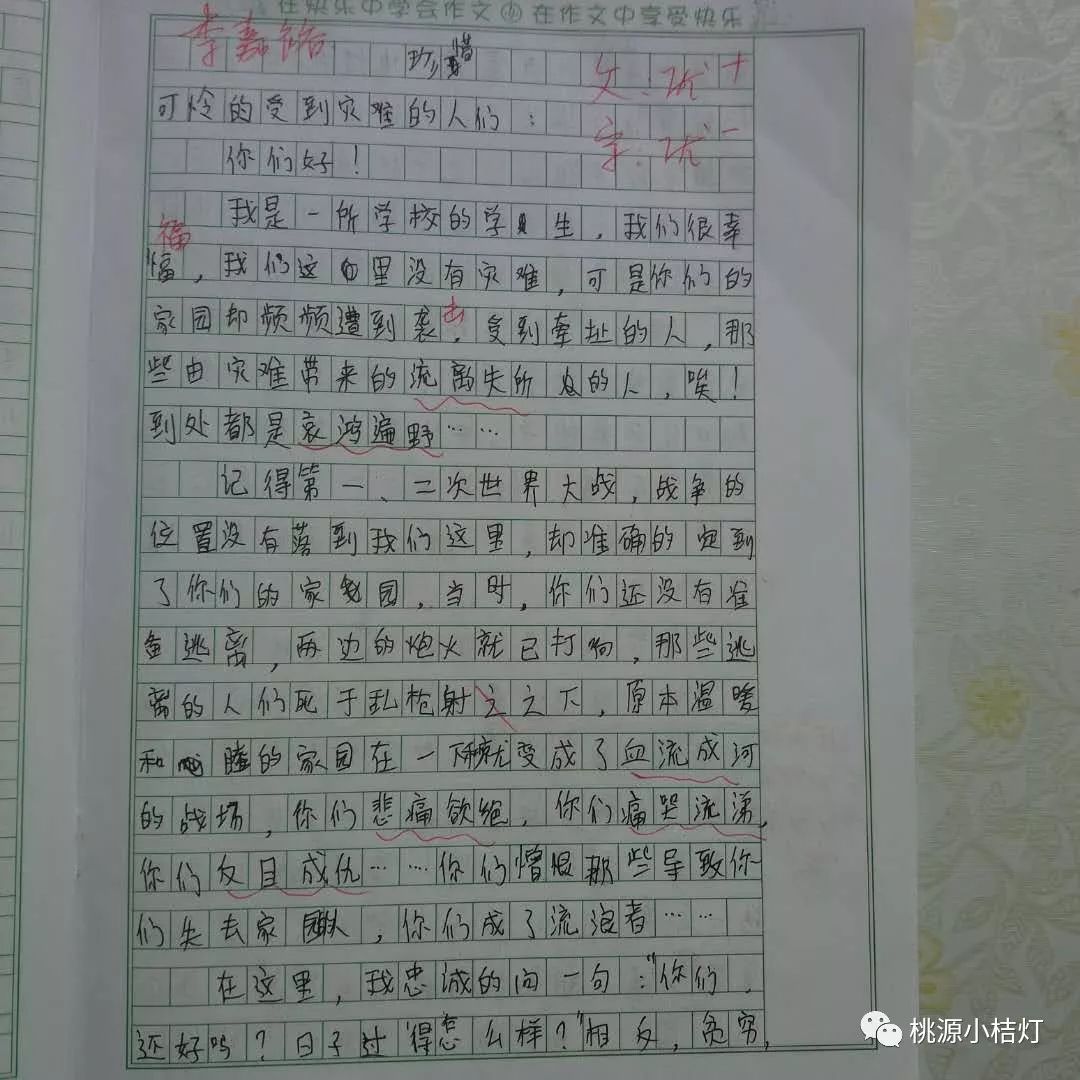 在快乐中学会作文 在作文中享受快乐
李嘉
珍惜
文:优+
字:优-
可怜的受到灾难的人们:
你们好!
我是一所学校的学生,我们很幸
福
福,我们这里没有灾难,可是你们的
家园却频频遭到袭击,受到牵扯的人,那
些由灾难带来的流离失所的人,唉!
到处都是哀鸿遍野……
记得第一、二次世界大战,战争的
位置没有落到我们这里,却准确的定到
了你们的家园,当时,你们还没有准
备逃离,两边的炮火就已打响,那些逃
离的人们死于乱枪射之下,原本温暖
和睦的家园在一下就变成了血流成河
的战场,你们悲痛欲绝,你们痛哭流涕,
你们反目成仇……你们憎恨那些导致你
们失去家园人,你们成了流浪者……
在这里,我忠诚的问一句:"你们,
还好吗?日子过得怎么样?"相反,贫穷,
桃源小桔灯